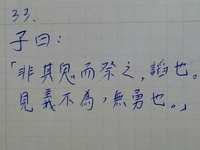 33.
子曰：
「非其鬼而祭之，謟也。
見義不為，無勇也。」